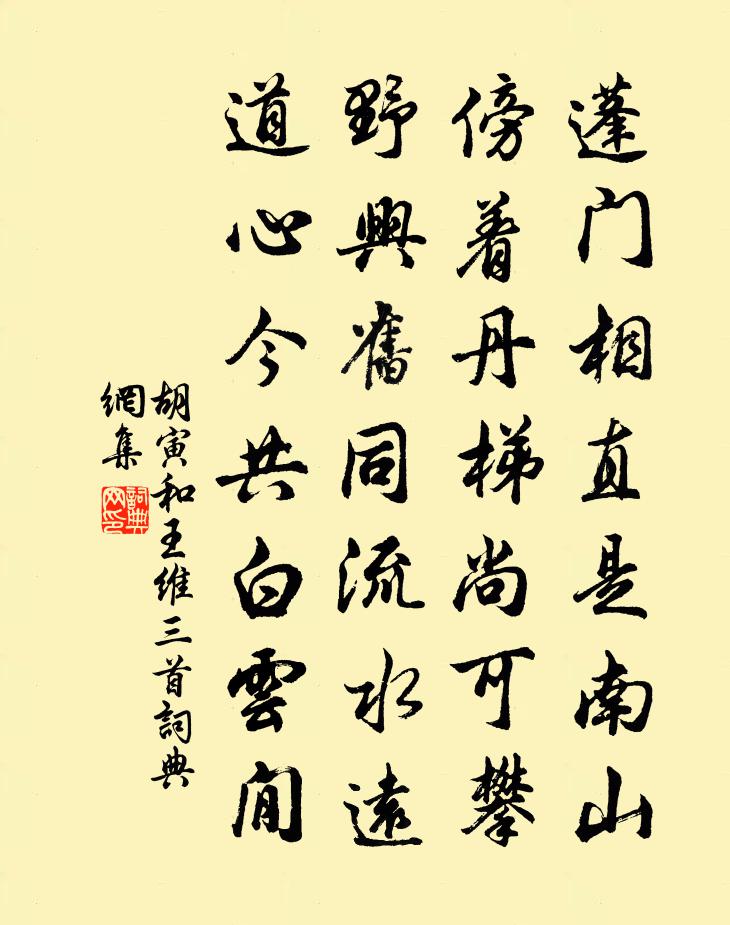 蓬門相直是南山
傍着丹梯尚可攀
野興舊同流水遠
道心今共白雲閒
胡寅和王維三首詞典
網集
詞典网印